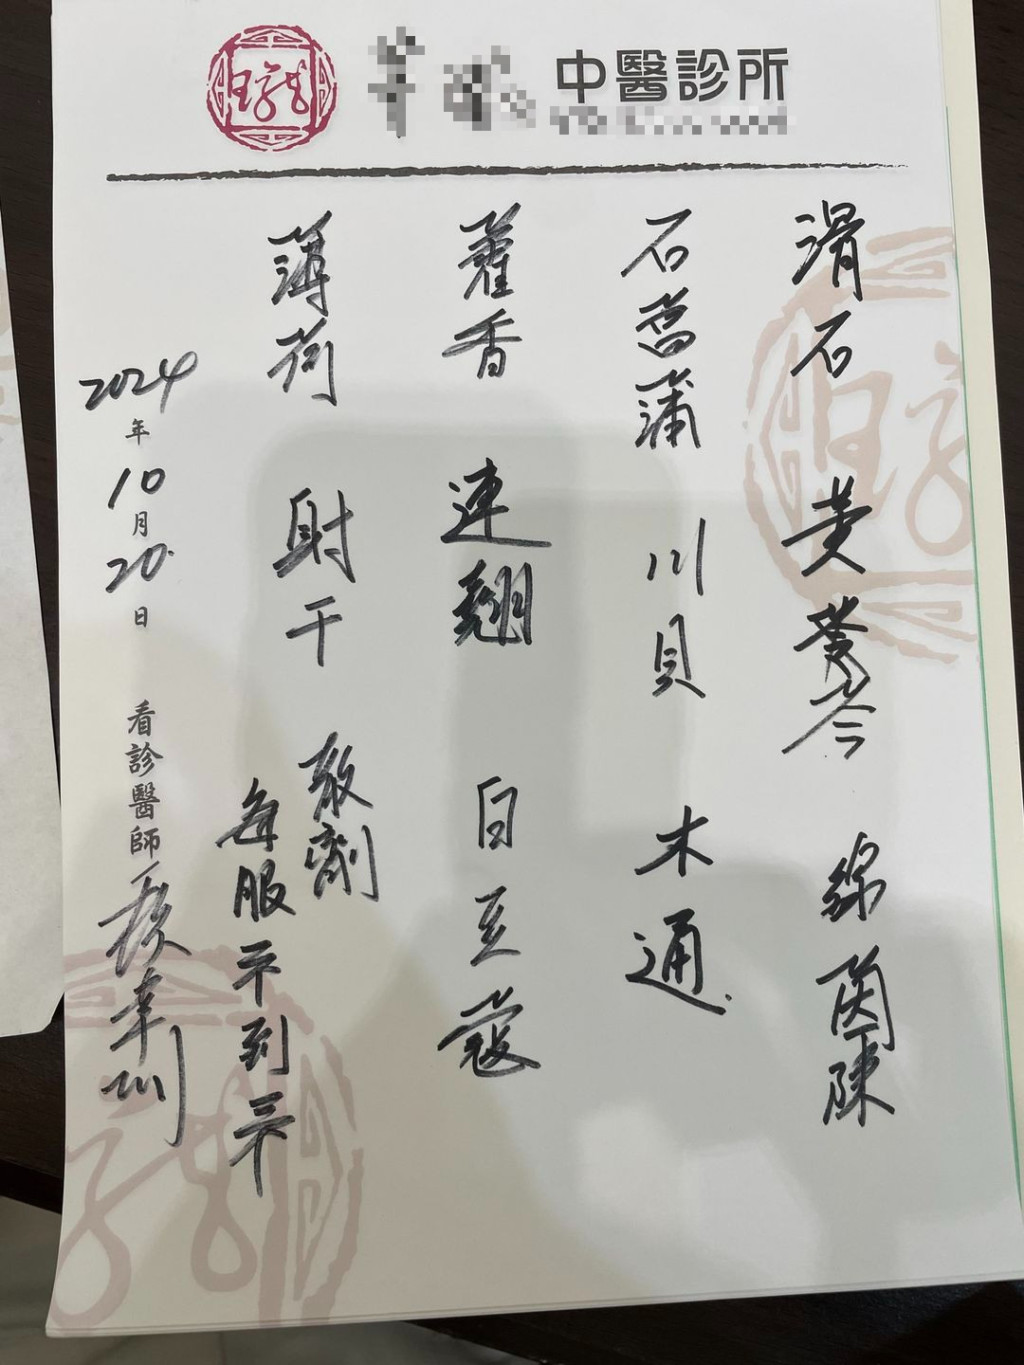 中醫診所
滑石 黃黃芩 綿茵陳
石菖蒲 川貝 木通
藿香 連翹 白豆蔻
薄荷 射干 散劑
每服 到
2024年10月20日 看診醫師